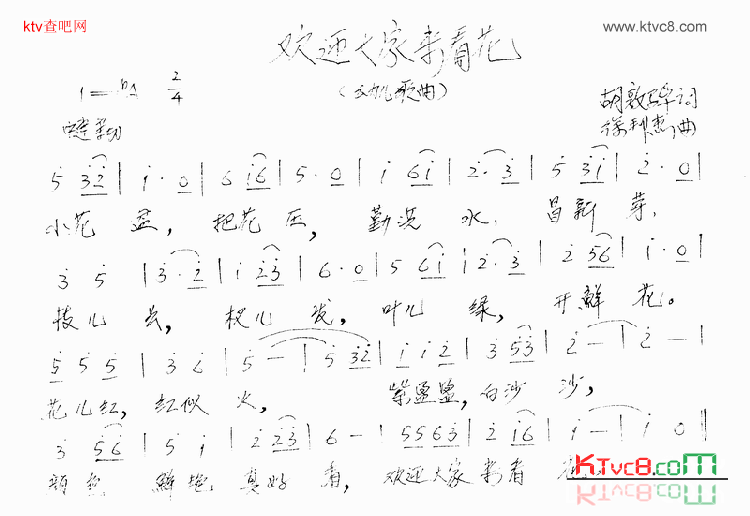 ktv查吧网 www.ktvc8.com
欢迎大家来看花
(幼儿歌曲)
1=♭A 2/4 胡敦骅词
徐利杰曲
5 3 2 | 1 · 0 | 6 1 6 | 5 · 0 | 1 6 1 | 2 · 3 | 5 3 1 | 2 · 0
小花盆,把花压,勤浇水,冒新芽,
3 5 | 3 · 2 | 1 2 3 | 6 · 0 | 5 6 1 | 2 · 3 | 2 5 6 | 1 · 0
枝儿长,杈儿发,叶儿绿,开鲜花。
5 5 5 | 3 6 | 5 — | 5 3 2 | 1 1 2 | 3 5 3 | 2 — | 2 — |
花儿红,红似火,紫盈盈,白沙沙,
3 5 6 | 5 1 | 2 2 3 | 6 — | 5 5 6 3 | 2 1 6 | 1 — | 1 0 ‖
颜色鲜艳真好看,欢迎大家来看花
KTvc8.com